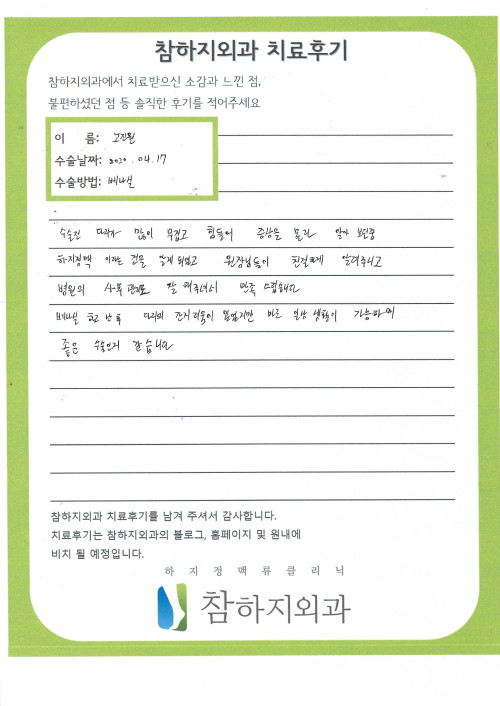 참하지외과 치료후기
참하지외과에서 치료받으신 소감과 느낀 점,
불편하셨던 점 등 솔직한 후기를 적어주세요
이 름:
수술날짜: 2020. 04. 17
수술방법: 베나실
수술전 다리가 많이 무겁고 힘들어 증상을 몰라 알아 보던중
하지정맥 이라는 것을 알게 되었고 원장님들이 친절하게 알려주시고
병원의 사후 관리도 잘 해주셔서 만족 스럽습니다
베나실 하고 난 후 다리의 간지러움이 있었지만 바로 일상 생활이 가능하며
좋은 수술인거 같습니다
참하지외과 치료후기를 남겨 주셔서 감사합니다.
치료후기는 참하지외과의 블로그, 홈페이지 및 원내에
비치 될 예정입니다.
하지정맥류클리닉
참하지외과